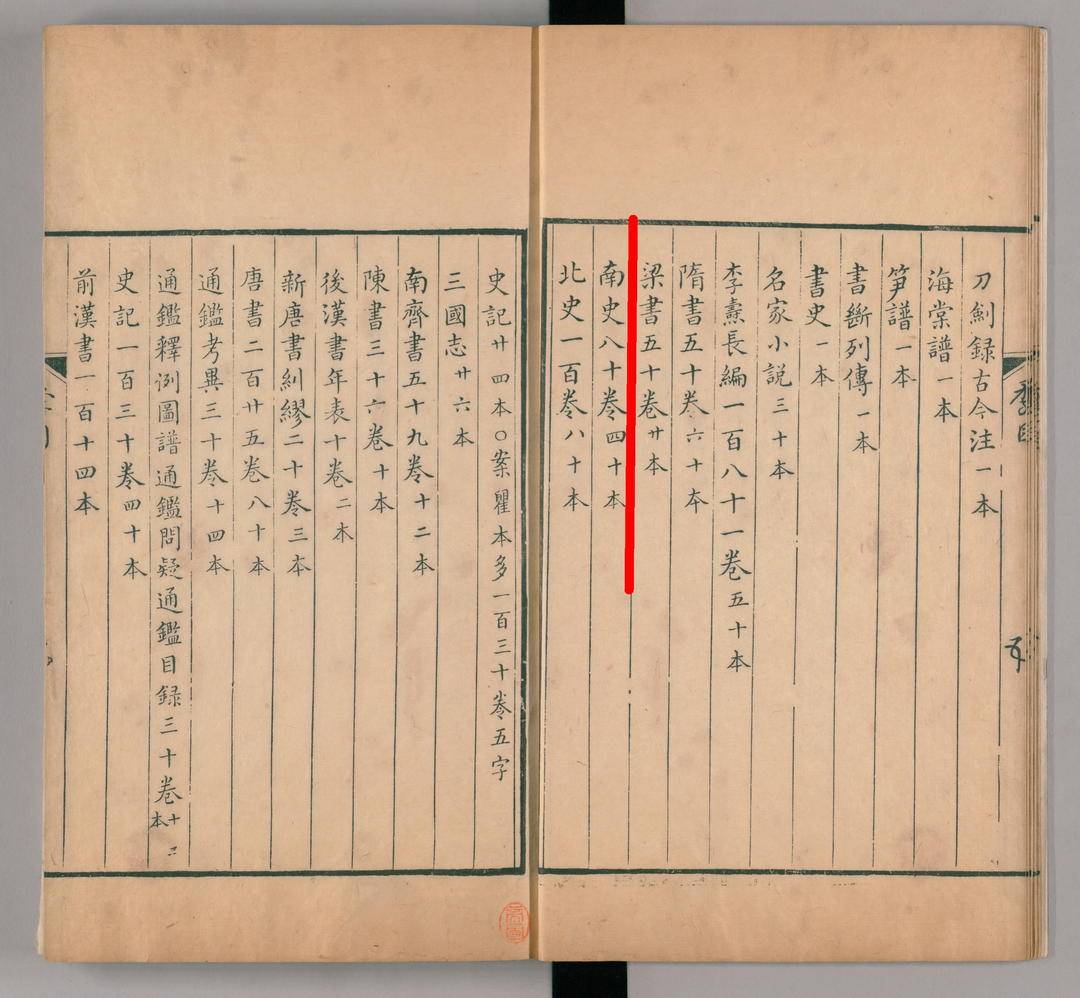 刀劍録古今注一本
海棠譜一本
笋譜一本
書斷列傳一本
書史一本
名家小説三十本
李燾長編一百八十一卷五十本
隋書五十卷六十本
梁書五十卷廿本
南史八十卷四十本
北史一百卷八十本
史記廿四本○案瞿本多一百三十卷五字
三國志廿六本
南齊書五十九卷十二本
陳書三十六卷十本
後漢書年表十卷二本
新唐書糾繆二十卷三本
唐書二百廿五卷八十本
通鑑考異三十卷十四本
通鑑釋例圖譜通鑑問疑通鑑目録三十卷十二本
史記一百三十卷四十本
前漢書一百十四本